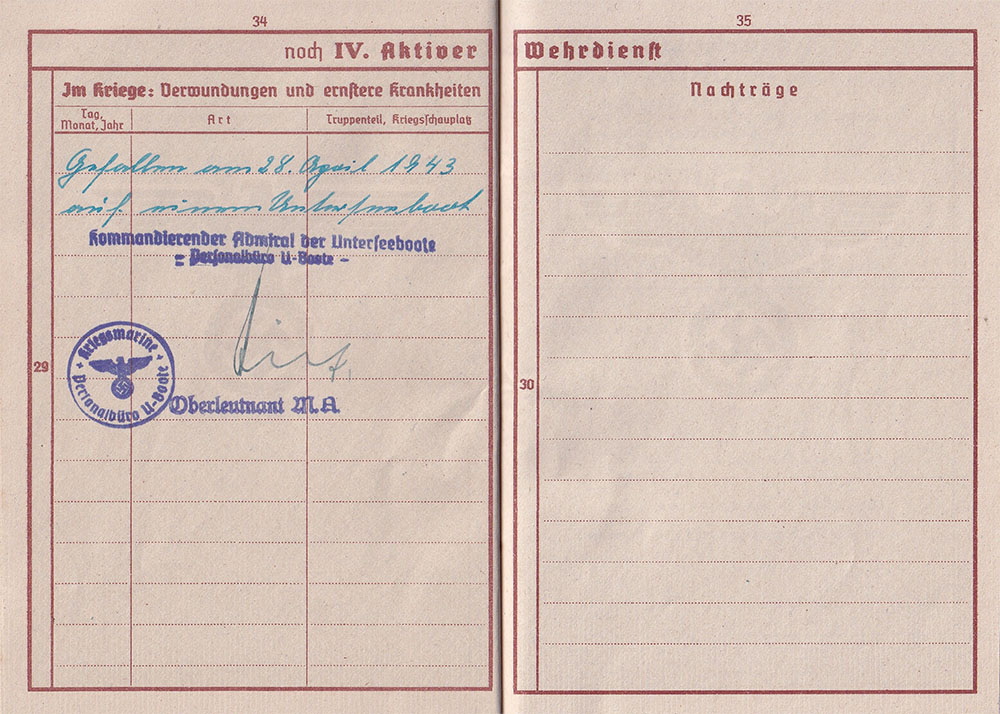 34
noch IV. Aktiver
Im Kriege: Verwundungen und ernstere Krankheiten
Tag, Monat, Jahr
Art
Truppenteil, Kriegsschauplatz
Gefallen am 28. April 1943
auf einem Unterseeboot
Kommandierender Admiral der Unterseeboote
= Personalbüro U-Boote -
29
+ Kriegsmarine +
Personalbüro U-Boote
Oberleutnant M.A.
35
Wehrdienst
Nachträge
30